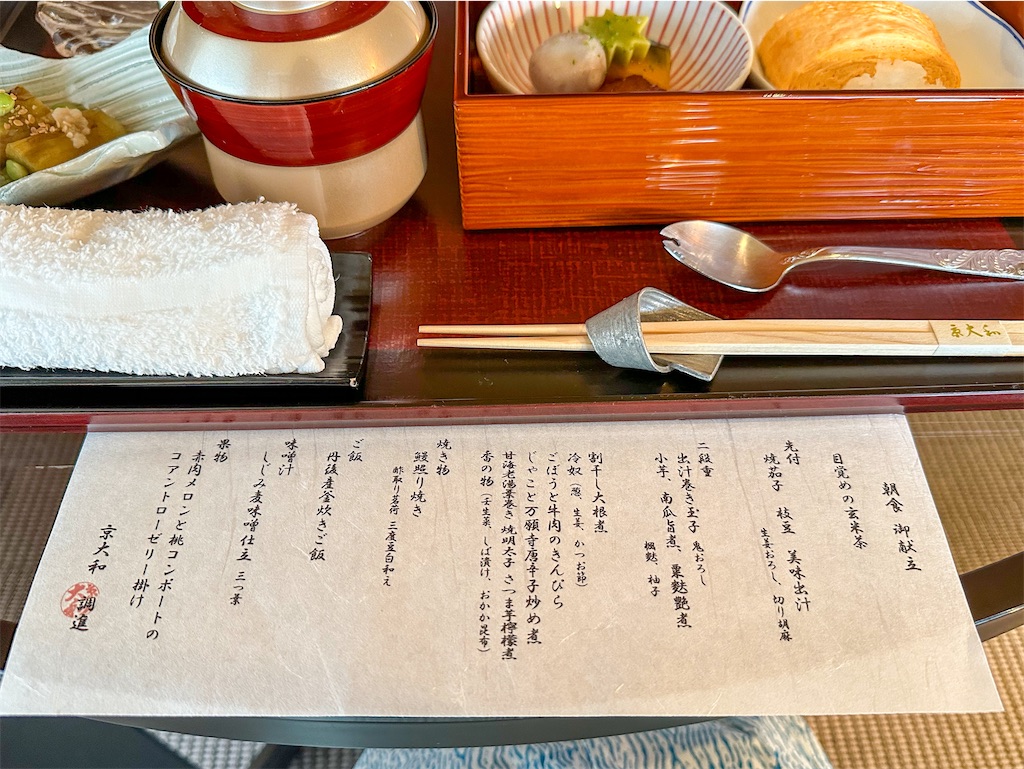 朝食 御献立
目覚めの玄米茶
先付
焼茄子 枝豆 美味出汁
生姜おろし、切り胡麻
二段重
出汁巻き玉子 鬼おろし
小芋、南瓜旨煮、粟麩艶煮
楓麩、柚子
割干し大根煮
冷奴(葱、生姜、かつお節)
ごぼうと牛肉のきんぴら
じゃこと万願寺唐辛子炒め煮
甘海老湯葉巻き 焼明太子 さつま芋檸檬煮
香の物(壬生菜、しば漬け、おかか昆布)
焼き物
鰻照り焼き
酢取り茗荷 三度豆白和え
ご飯
丹後産釜炊きご飯
味噌汁
しじみ麦味噌仕立 三つ葉
果物
赤肉メロンと桃コンポートの
コアントローゼリー掛け
京大和
調進
京大和